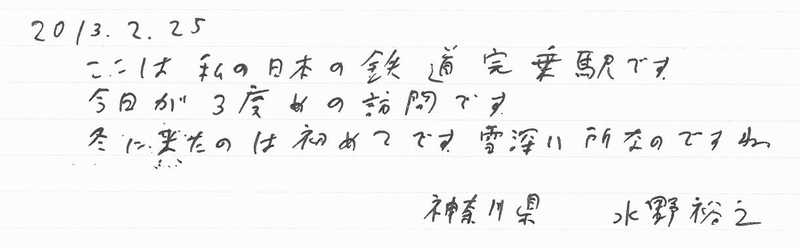 2013.2.25
ここは私の日本の鉄道完乗駅です
今日が3度めの訪問です
冬に来たのは初めてです雪深い所なのですね
神奈川県 水野裕之